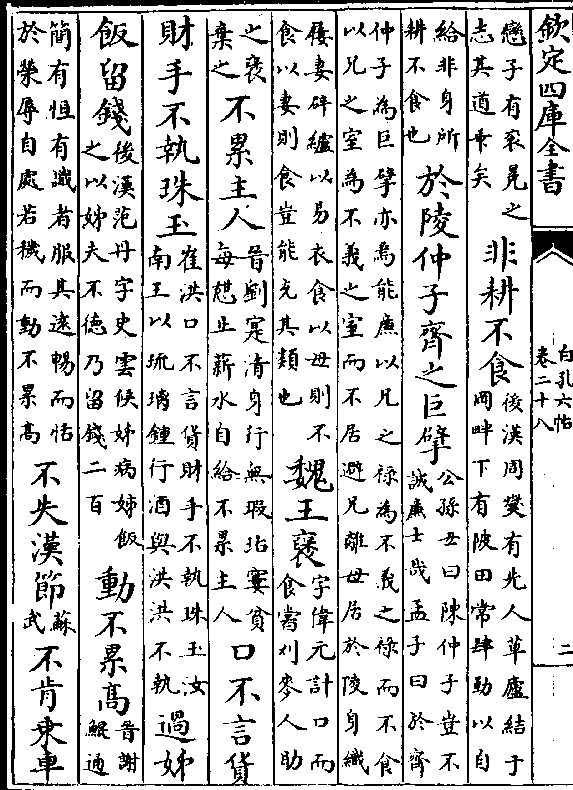 欽定四庫全書
白孔六帖
卷二十八
二
戀子有衮冕之
志其道卑矣
非耕不食
後漢周燮有先人草廬結于
岡畔下有陂田常肆勤以自
給非身所
耕不食也
於陵仲子齊之巨擘
公孫丑曰陳仲子豈不
誠廉士哉孟子曰於齊
仲子為巨擘亦為能廉以兄之祿為不義之祿而不食
以兄之室為不義之室而不居避兄離母居於陵身織
屨妻辟纑以易衣食以母則不
食以妻則食豈能充其類也
魏王裒
字偉元計口而
食嘗刈麥人助
之裒
棄之
不累主人
晉劉寔清身行無瑕玷寔貧
每憇止薪水自給不累主人
口不言貨
財手不執珠玉
崔洪口不言貨財手不執珠玉汝
南王以琉璃鍾行酒與洪洪不執
過姊
飯留錢
後漢范丹字史雲候姊病姊飯
之以姊夫不德乃留錢二百
動不累高
晉謝
鯤通
簡有恒有識者服其遠暢而恬
於榮辱自處若穢而動不累高
不失漢節
蘇
武
不肯乗車